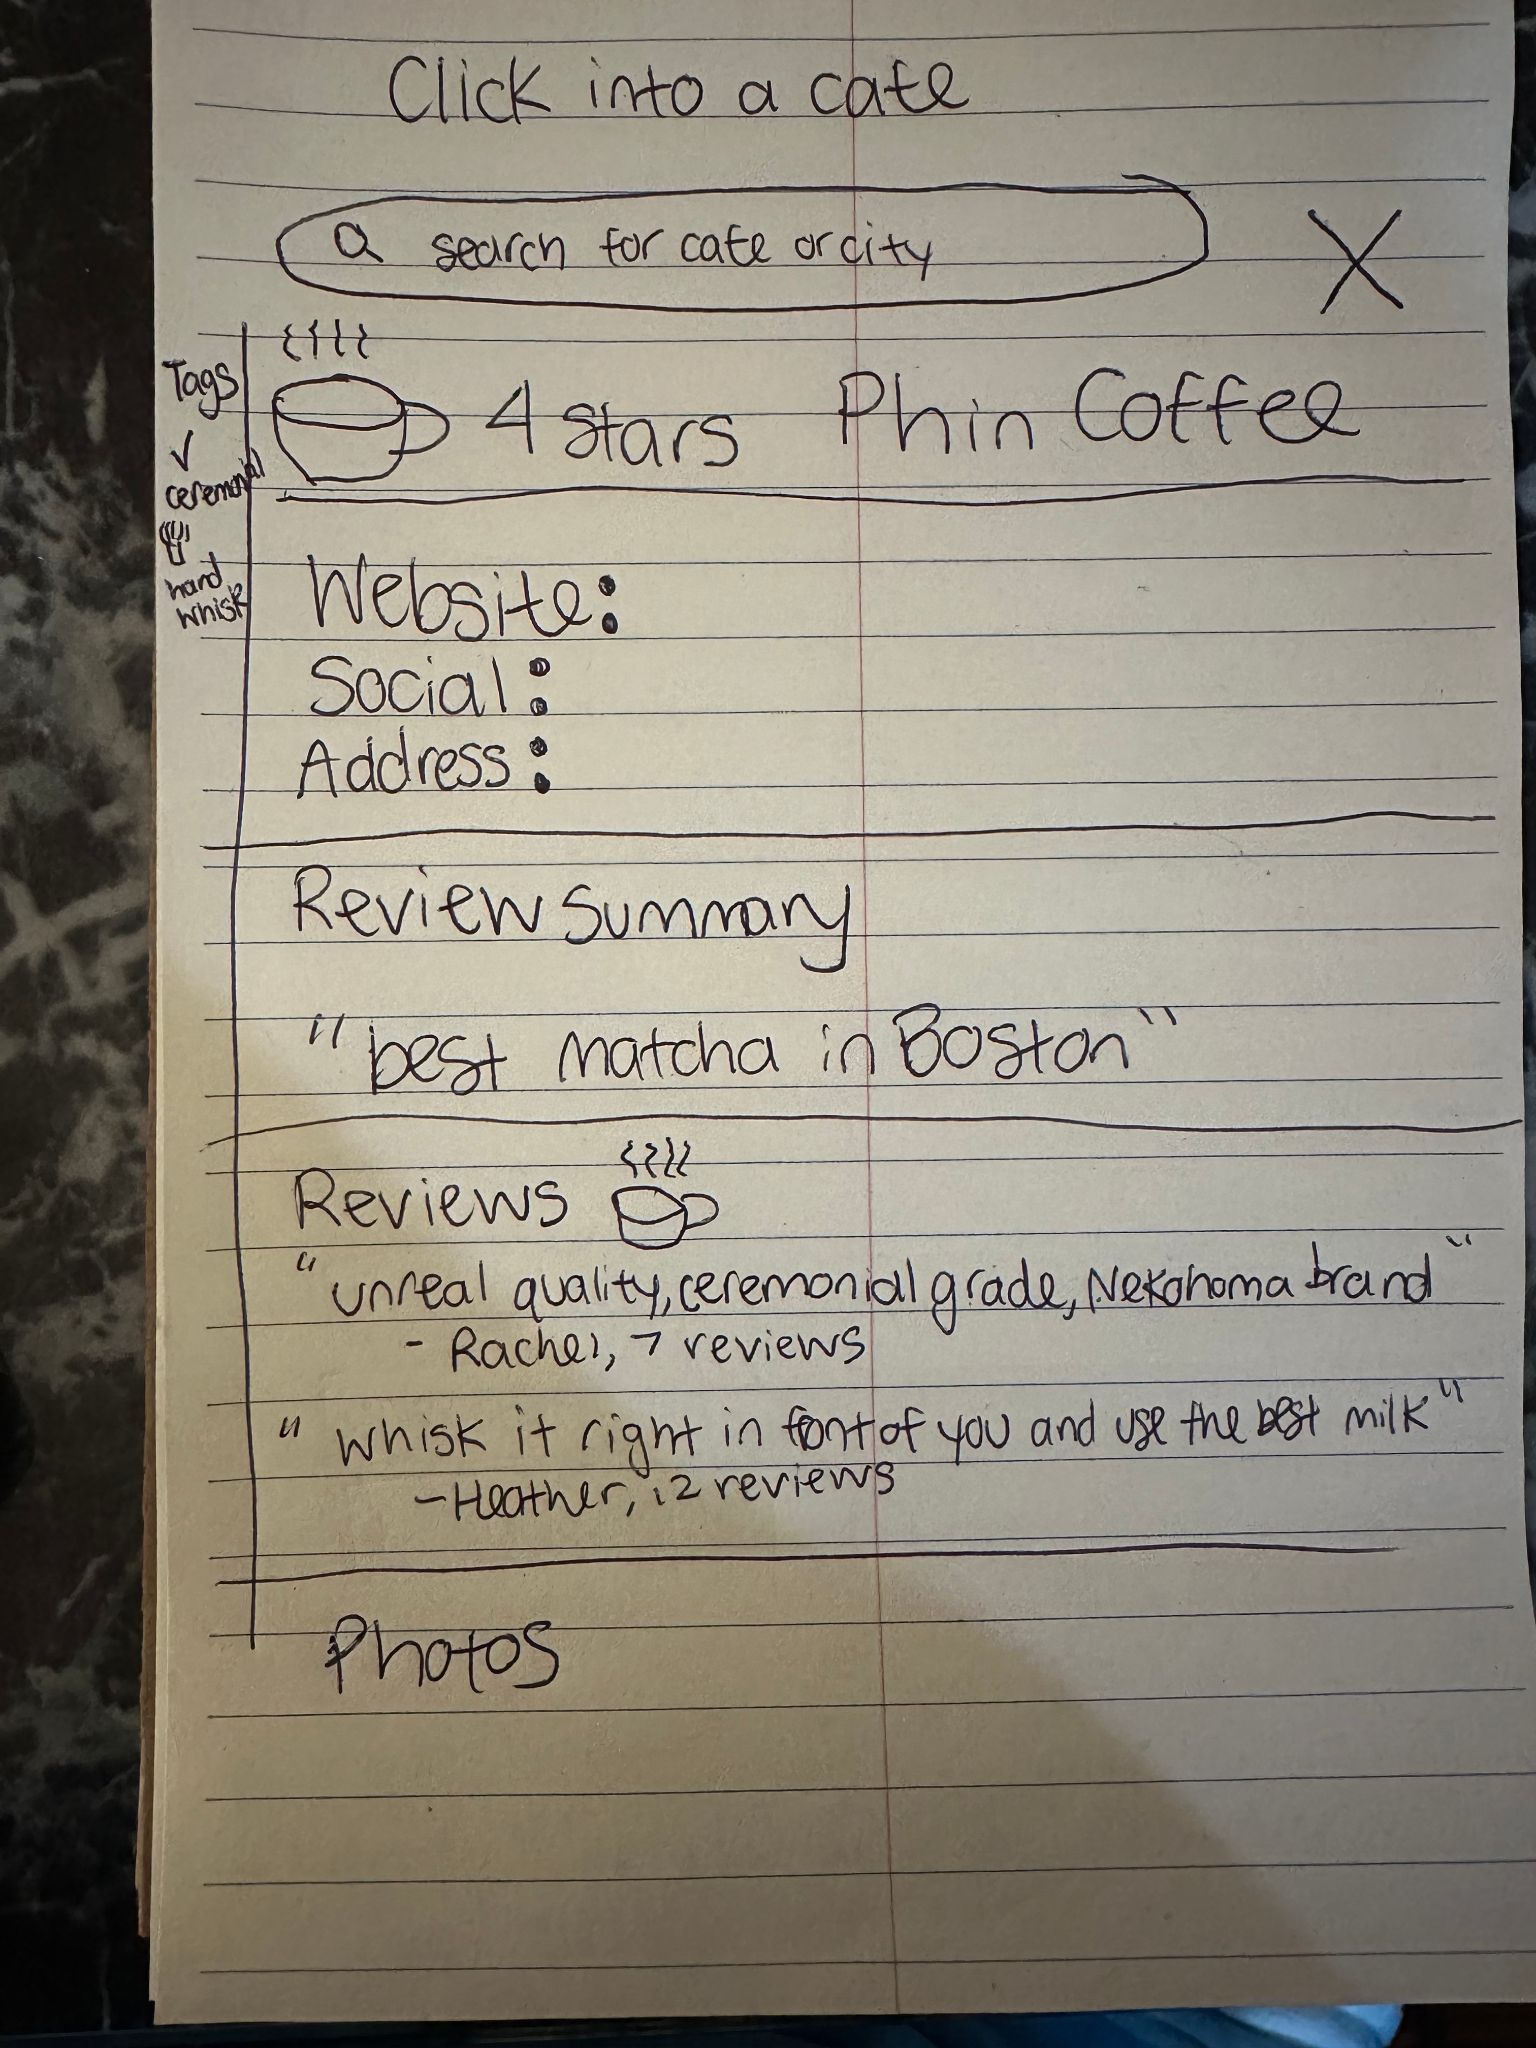 Click into a cafe
search for cafe or city
X
Tags
ceremonial
hand
whisk
4 stars Phin Coffee
Website:
Social:
Address:
Review Summary
"best matcha in Boston"
Reviews
"unreal quality, ceremonial grade, Nekohama brand"
- Rachel, 7 reviews
"whisk it right in font of you and use the best milk"
- Heather, 12 reviews
Photos